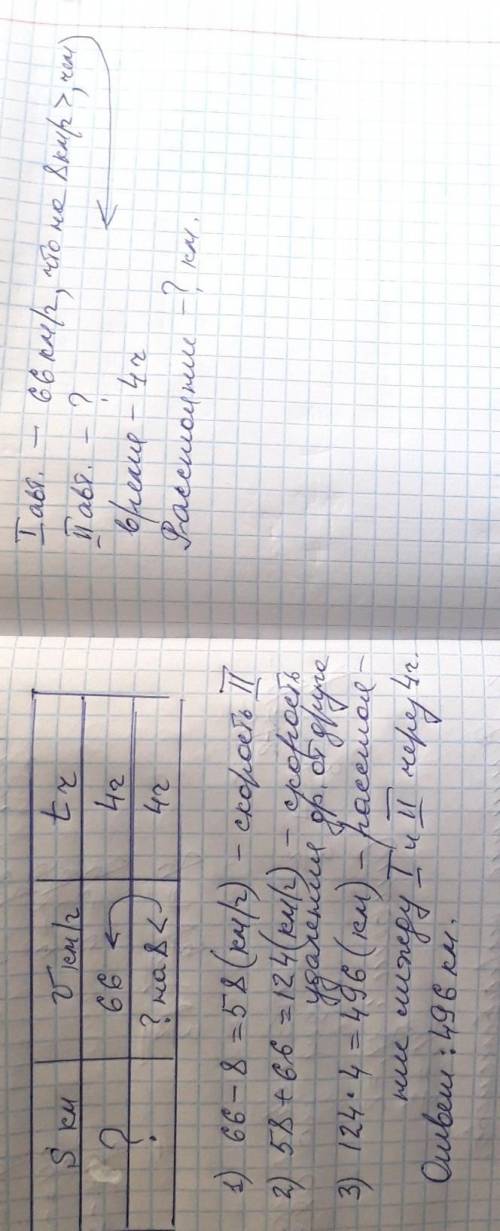 S км | V км/г | t г
? | 66 | 4г
? | ? на 8 < | 4г
1) 66 - 8 = 58 (км/г) - скорость II
2) 58 + 66 = 124 (км/г) - скорость
удаления др. от друга
3) 124 · 4 = 496 (км) - расстоя-
ние между I и II через 4г.
Ответ: 496 км.
I авт. - 66 км/г, что на 8 км/г >, чем
II авт. - ?
время - 4г
Расстояние - ? км.